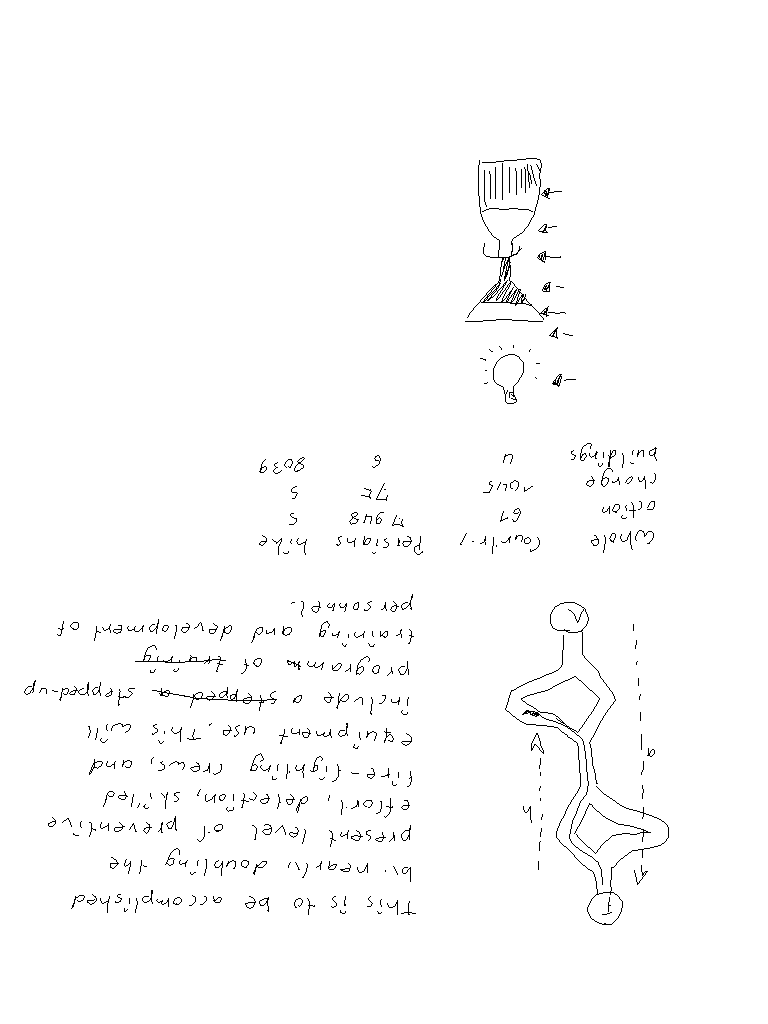 This is to be accomplished
by nearly doubling the
present level of preventive
effort, detection, skilled
fire-fighting crews, and
equipment use. This will
include a stepped a stepped-up
programm of trainig
training and development of
personnel.
Whole Country Persians hike
action 5
change 1045 5
buildings 8039